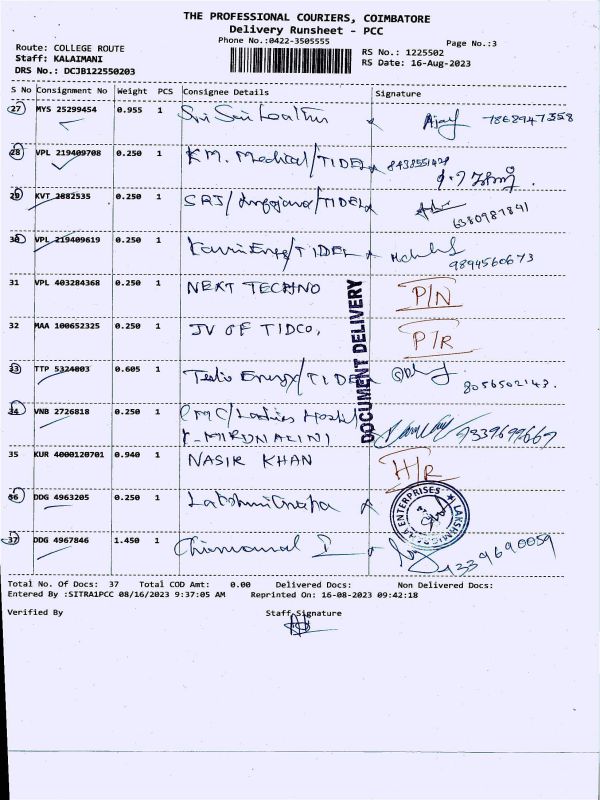 THE PROFESSIONAL COURIERS, COIMBATORE
Delivery Runsheet - PCC
Phone No.:0422-3505555
Page No.:3
Route: COLLEGE ROUTE
Staff: KALAIMANI
DRS No.: DCJB122550203
RS No.: 1225502
RS Date: 16-Aug-2023
S No Consignment No Weight PCS Consignee Details Signature
27 MYS 25299454 0.955 1 Sri Sai 7868947358
28 VPL 219409708 0.250 1 KM. Medical/TIDEL
29 KVT 2882535 0.250 1 SRJ/ /TIDEL 6380987841
30 VPL 219409619 0.250 1 /TIDEL 9894560673
31 VPL 403284368 0.250 1 NEXT TECHNO P/N
32 MAA 100652325 0.250 1 JV OF TIDCO, P/R
33 TTP 5324803 0.605 1 Energy/TIDEL 8056502143.
34 VNB 2726818 0.250 1 /Ladies Hostel
MIRUNALINI 9339699669
35 KUR 4000120701 0.940 1 NASIR KHAN H/R
36 DDG 4963205 0.250 1
37 DDG 4967846 1.450 1
DOCUMENT DELIVERY
ENTERPRISES
Total No. Of Docs: 37 Total COD Amt: 0.00 Delivered Docs: Non Delivered Docs:
Entered By :SITRA1PCC 08/16/2023 9:37:05 AM Reprinted On: 16-08-2023 09:42:18
Verified By Staff Signature